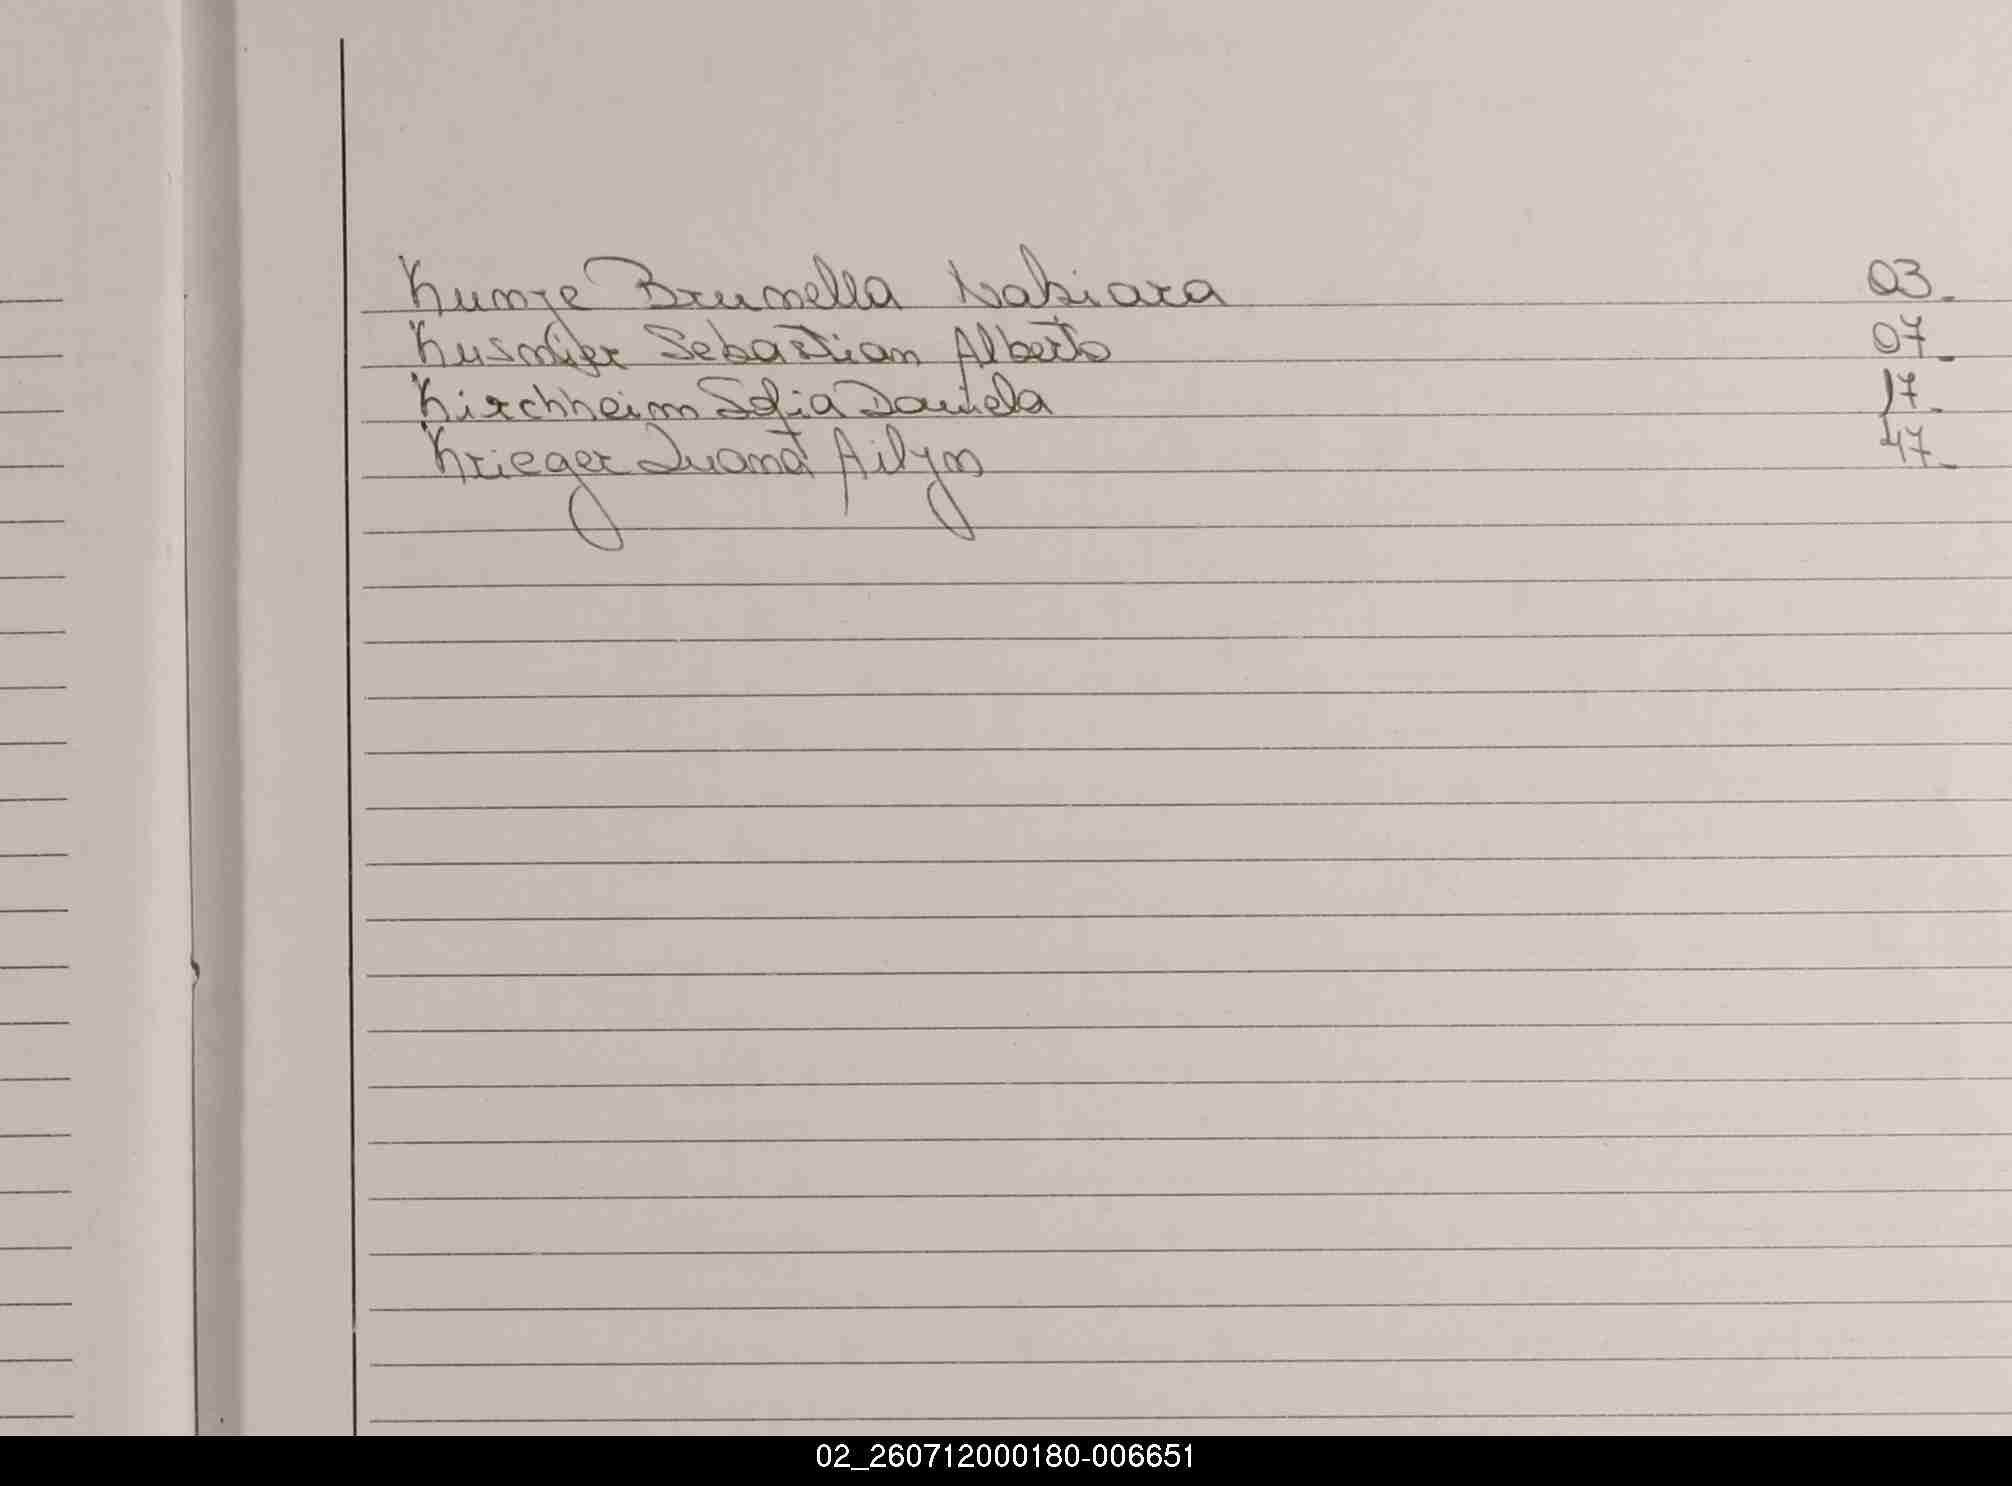 Kunze Brunella Nakiara 03.
Sebastian Alberto 07.
Kirchheim Sofia Daniela 17.
Krieger Luana Ailyn 47.
02_260712000180-006651